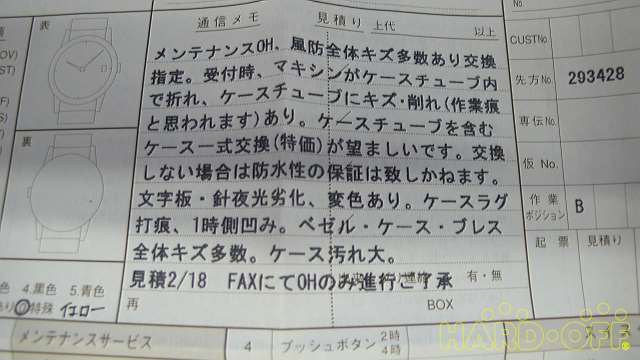 No
通信メモ 見積り 上代 以上
表
CUSTNo.
OV)
ST)
メンテナンスOH、風防全体キズ多数あり交換
指定。受付時、マキシンがケースチューブ内
で折れ、ケースチューブにキズ・削れ(作業痕
と思われます)あり。ケースチューブを含む
ケース一式交換(特価)が望ましいです。交換
しない場合は防水性の保証は致しかねます。
文字板・針夜光劣化、変色あり。ケースラグ
打痕、1時側凹み。ベゼル・ケース・ブレス
全体キズ多数。ケース汚れ大。
見積2/18 FAXにてOHのみ進行ご了承
有・無
先方No. 293428
専伝No.
仮No.
作業
ポジション B
起票 見積り
裏
色 4.黒色 5.青色
特殊 イエロー
再 BOX
メンテナンスサービス 4 プッシュボタン 2時
4時
HARD-OFF